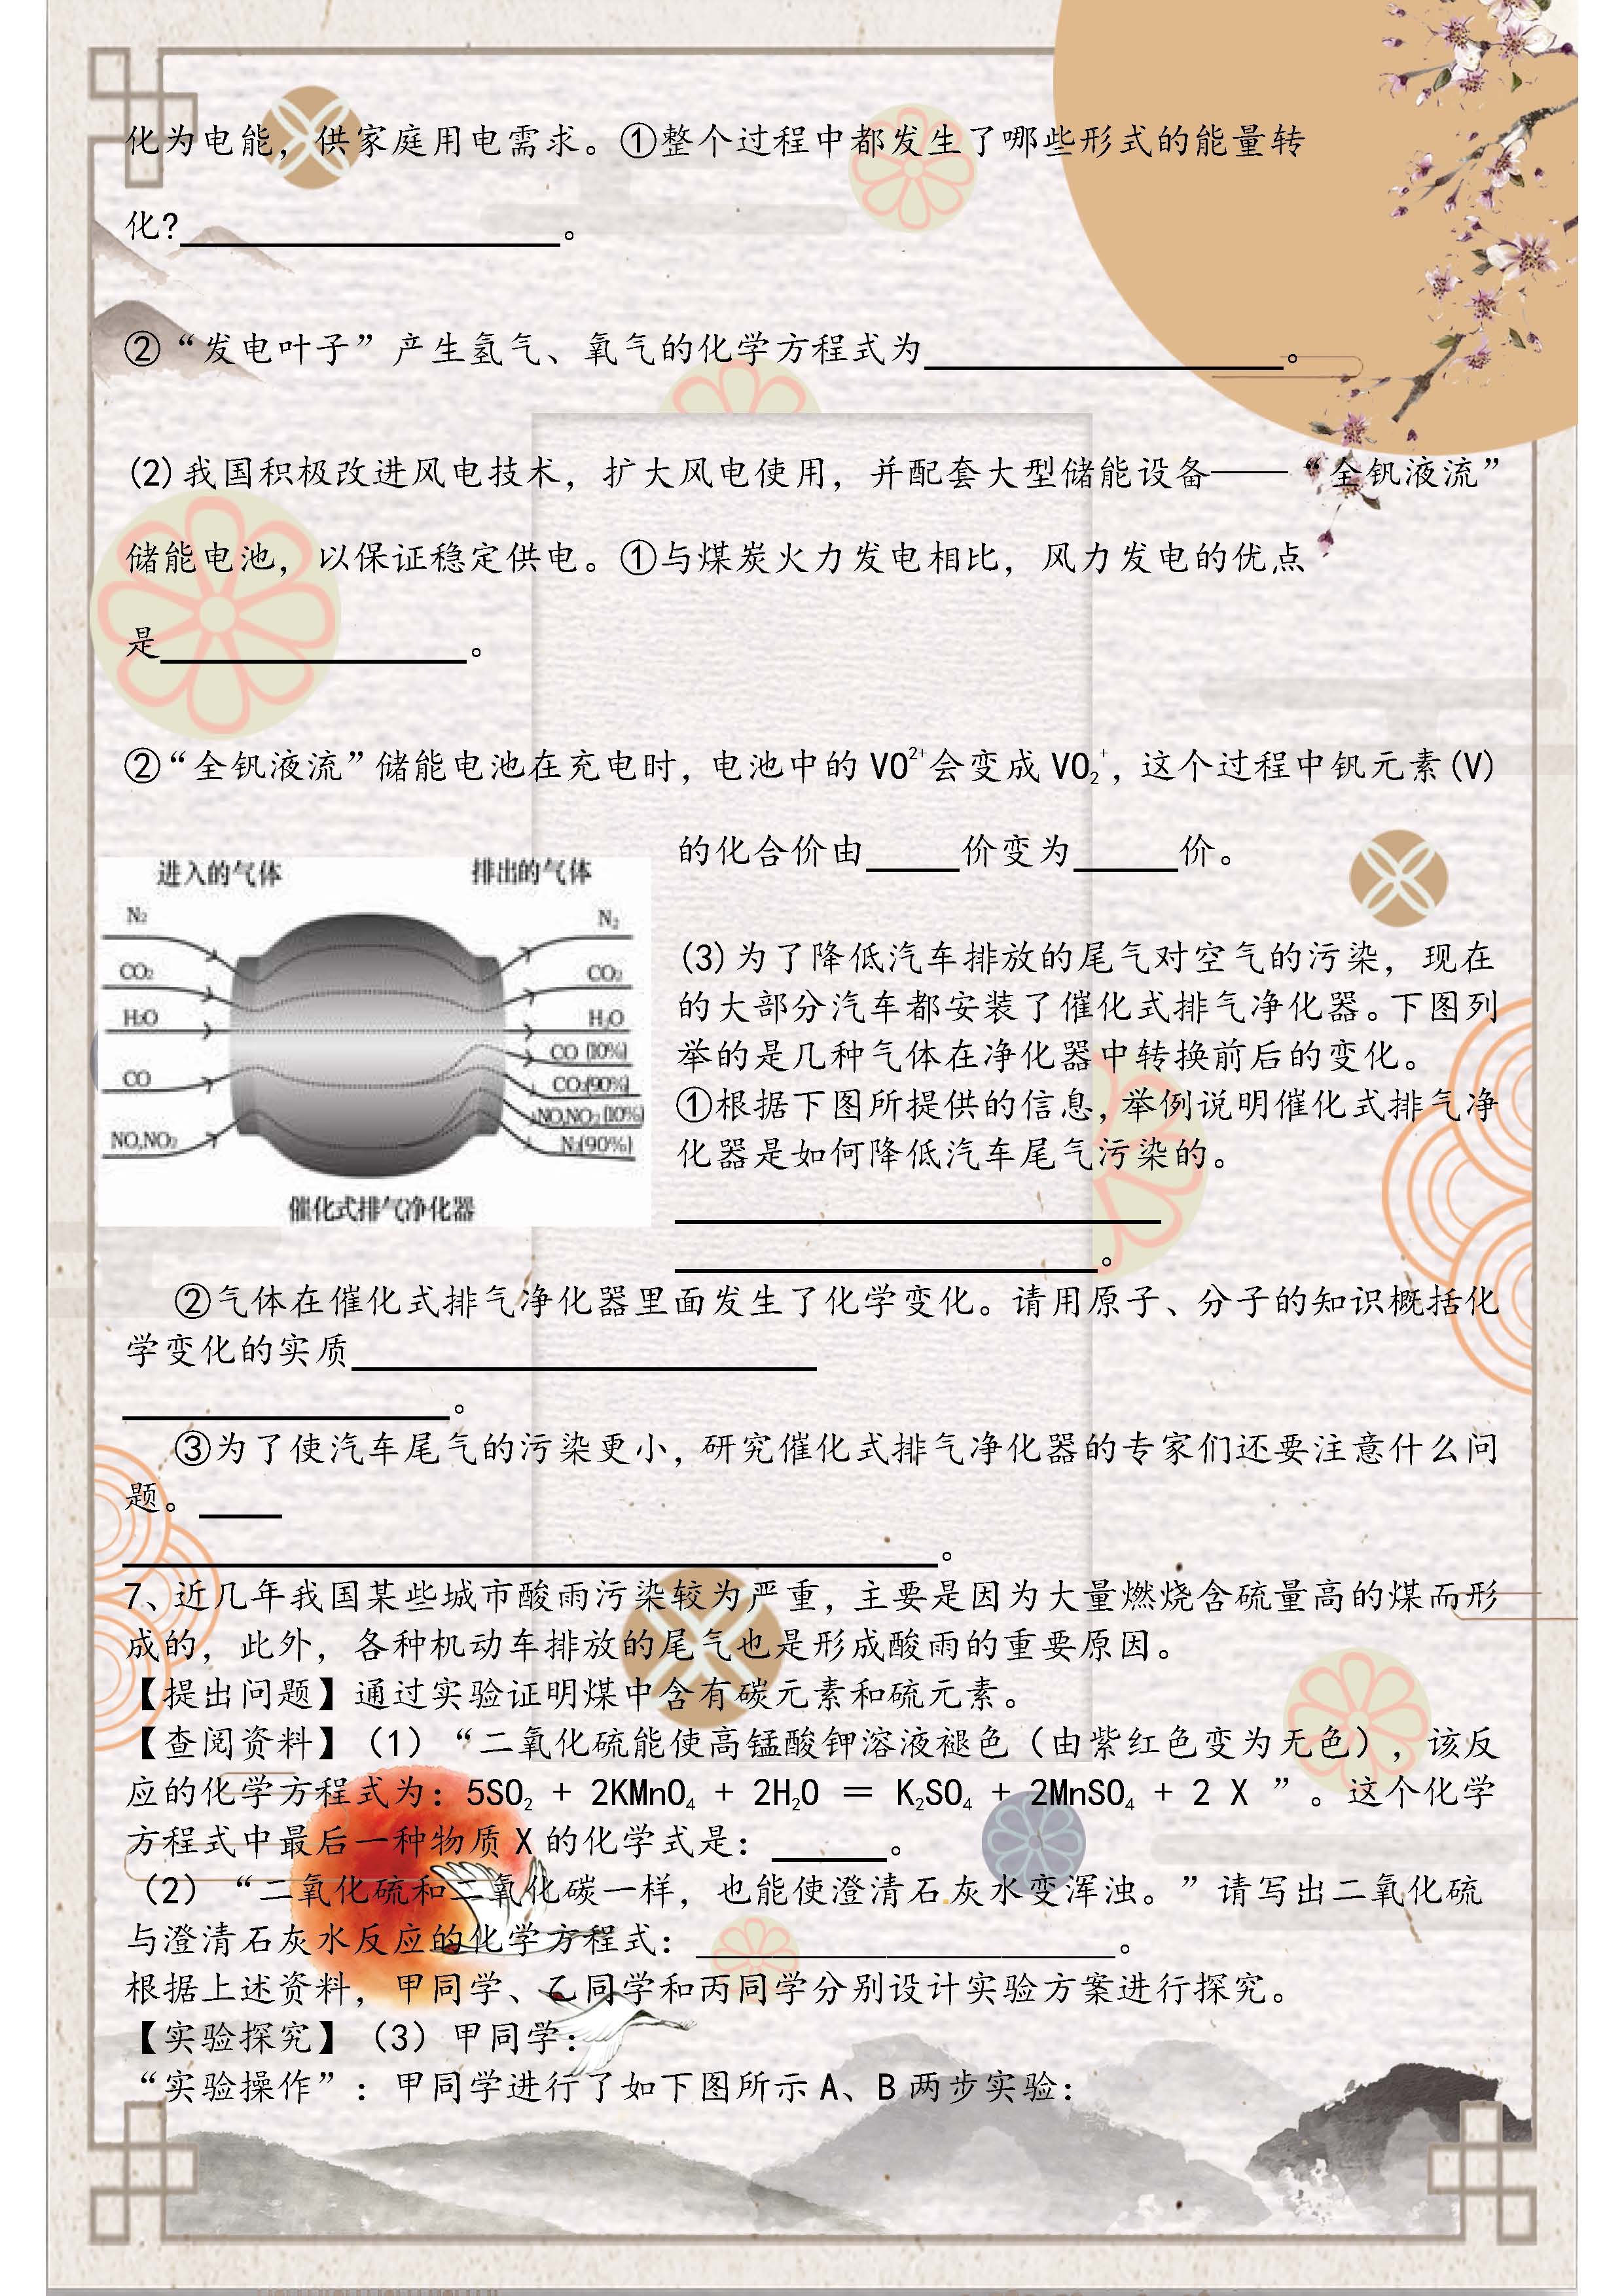 化为电能，供家庭用电需求。①整个过程中都发生了哪些形式的能量转
化?____________________。
②“发电叶子”产生氢气、氧气的化学方程式为____________________。
(2)我国积极改进风电技术，扩大风电使用，并配套大型储能设备——“全钒液流”
储能电池，以保证稳定供电。①与煤炭火力发电相比，风力发电的优点
是________________。
②“全钒液流”储能电池在充电时，电池中的 VO²⁺会变成 VO₂⁺，这个过程中钒元素(V)
的化合价由_____价变为_____价。
进入的气体 排出的气体
N₂ N₂
CO₂ CO₂
H₂O H₂O
CO (10%)
CO CO₂(90%)
NO,NO₂(10%)
NO,NO₂ N₂(90%)
催化式排气净化器
(3)为了降低汽车排放的尾气对空气的污染，现在
的大部分汽车都安装了催化式排气净化器。下图列
举的是几种气体在净化器中转换前后的变化。
①根据下图所提供的信息，举例说明催化式排气净
化器是如何降低汽车尾气污染的。
__________________________
______________________。
②气体在催化式排气净化器里面发生了化学变化。请用原子、分子的知识概括化
学变化的实质________________________
_________________。
③为了使汽车尾气的污染更小，研究催化式排气净化器的专家们还要注意什么问
题。____
__________________________________________。
7、近几年我国某些城市酸雨污染较为严重，主要是因为大量燃烧含硫量高的煤而形
成的，此外，各种机动车排放的尾气也是形成酸雨的重要原因。
【提出问题】通过实验证明煤中含有碳元素和硫元素。
【查阅资料】（1）“二氧化硫能使高锰酸钾溶液褪色（由紫红色变为无色），该反
应的化学方程式为：5SO₂ + 2KMnO₄ + 2H₂O ＝ K₂SO₄ + 2MnSO₄ + 2 X ”。这个化学
方程式中最后一种物质 X 的化学式是：______。
（2）“二氧化硫和二氧化碳一样，也能使澄清石灰水变浑浊。”请写出二氧化硫
与澄清石灰水反应的化学方程式：______________________。
根据上述资料，甲同学、乙同学和丙同学分别设计实验方案进行探究。
【实验探究】（3）甲同学：
“实验操作”：甲同学进行了如下图所示 A、B 两步实验：